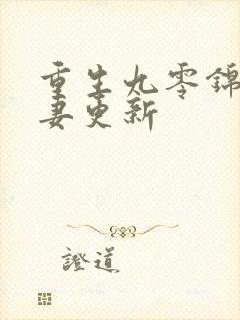 重生九零锦
妻更新
證道